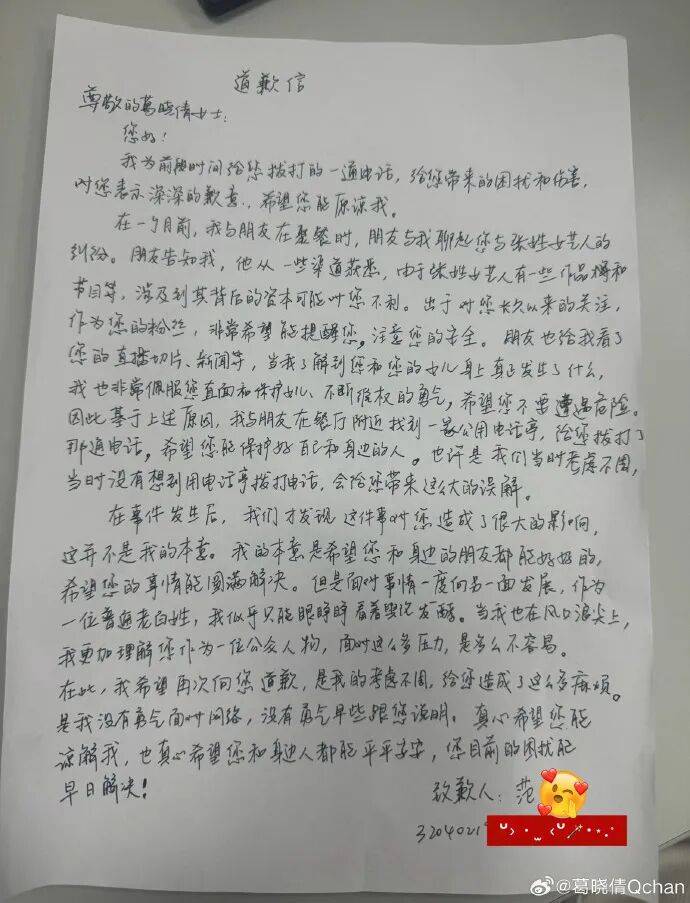 道歉信
尊敬的葛晓倩女士：
您好！
我为前段时间给您拨打的一通电话，给您带来的困扰和伤害，
对您表示深深的歉意，希望您能原谅我。
在一个月前，我与朋友在聚餐时，朋友与我聊起您与张姓女艺人的
纠纷。朋友告知我，他从一些渠道获悉，由于张姓女艺人有一些作品播和
节目等，涉及到其背后的资本可能对您不利。出于对您长久以来的关注，
作为您的粉丝，非常希望能提醒您，注意您的安全。朋友也给我看了
您的直播切片、新闻等，当我了解到您和您的女儿身上真正发生了什么，
我也非常佩服您直面和保护女儿、不断维权的勇气，希望您不要遭遇危险。
因此基于上述原因，我与朋友在餐厅附近找到一家公用电话亭，给您拨打了
那通电话，希望您能保护好自己和身边的人。也许是我们当时考虑不周，
当时没有想到用电话亭拨打电话，会给您带来这么大的误解。
在事件发生后，我们才发现这件事对您造成了很大的影响，
这并不是我的本意。我的本意是希望您和身边的朋友都能好好的，
希望您的事情能圆满解决。但是面对事情一度向另一面发展，作为
一位普通老百姓，我似乎只能眼睁睁看着舆论发酵。当我也在风口浪尖上，
我更加理解您作为一位公众人物，面对这么多压力，是多么不容易。
在此，我希望再次向您道歉，是我的考虑不周，给您造成了这么多麻烦。
是我没有勇气面对网络，没有勇气早些跟您说明。真心希望您能
谅解我，也真心希望您和身边人都能平平安安，您目前的困扰能
早日解决！
致歉人：范
3204021
@葛晓倩Qchan